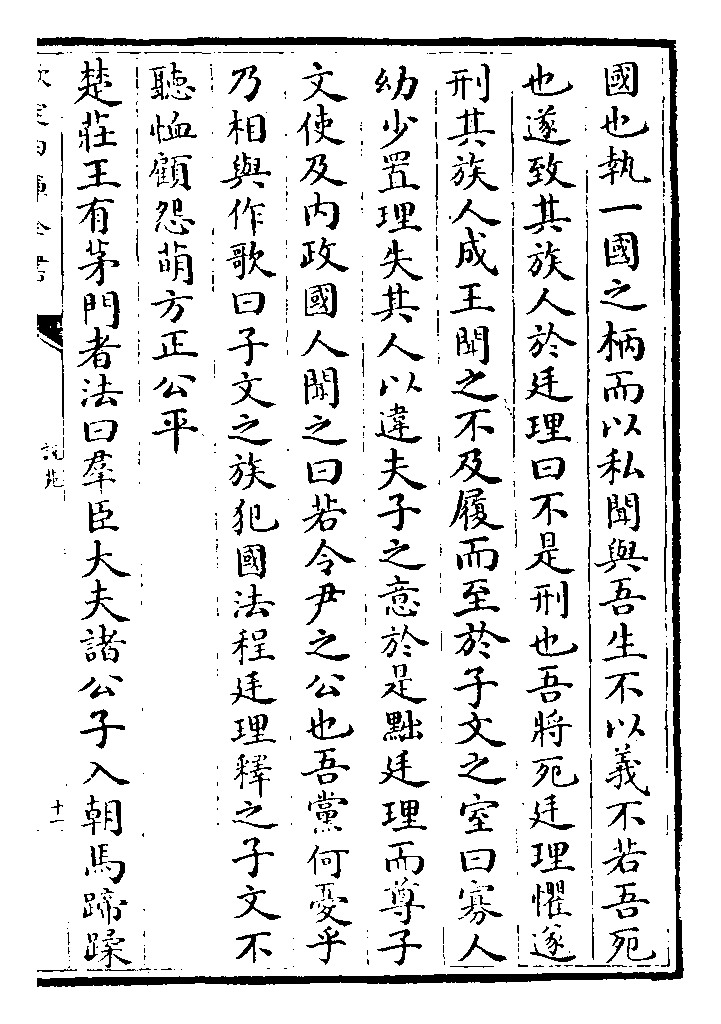 國也執一國之柄而以私聞與吾生不以義不若吾死
也遂致其族人於廷理曰不是刑也吾將死廷理懼遂
刑其族人成王聞之不及履而至於子文之室曰寡人
幼少置理失其人以違夫子之意於是黜廷理而尊子
文使及内政國人聞之曰若令尹之公也吾黨何憂乎
乃相與作歌曰子文之族犯國法程廷理釋之子文不
聽恤顧怨萌方正公平
楚莊王有茅門者法曰羣臣大夫諸公子入朝馬蹄蹂
欽定四庫全書
說苑
十一